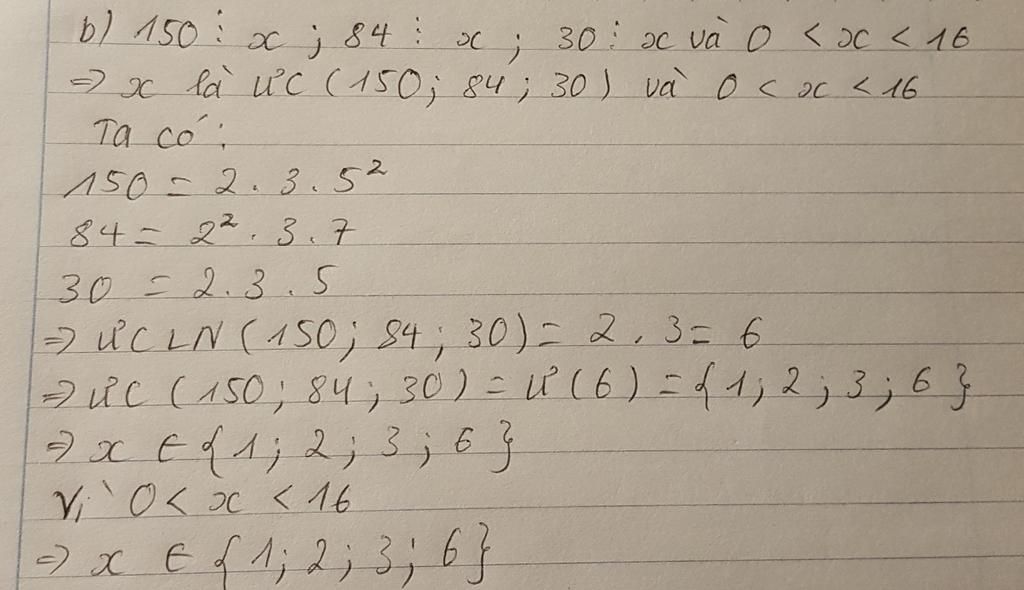 b) 150 ⋮ x ; 84 ⋮ x ; 30 ⋮ x và 0 < x < 16
⇒ x là ƯC (150; 84; 30) và 0 < x < 16
Ta có:
150 = 2 . 3 . 5²
84 = 2² . 3 . 7
30 = 2 . 3 . 5
⇒ ƯCLN (150; 84; 30) = 2 . 3 = 6
⇒ ƯC (150; 84; 30) = Ư(6) = {1; 2; 3; 6}
⇒ x ∈ {1; 2; 3; 6}
Vì 0 < x < 16
⇒ x ∈ {1; 2; 3; 6}